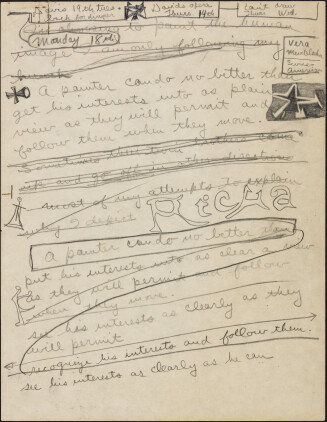 19th Tues
back to dinner
Davids opera
Thurs 14th
Can't draw
Tues Wed.
to paint the human
Monday 18th
image. I am only following my
vera
A painter can do no better than
get his interests into as plain
view as they will permit and
follow them when they move.
Sometimes they turn
and go off in other directions
most of my attempts to explain
why I depict
A painter can do no better than
put his interests into as clear a view
as they will permit and follow
when they move.
see his interests as clearly as they
will permit
recognize his interests and follow them.
see his interests as clearly as he can